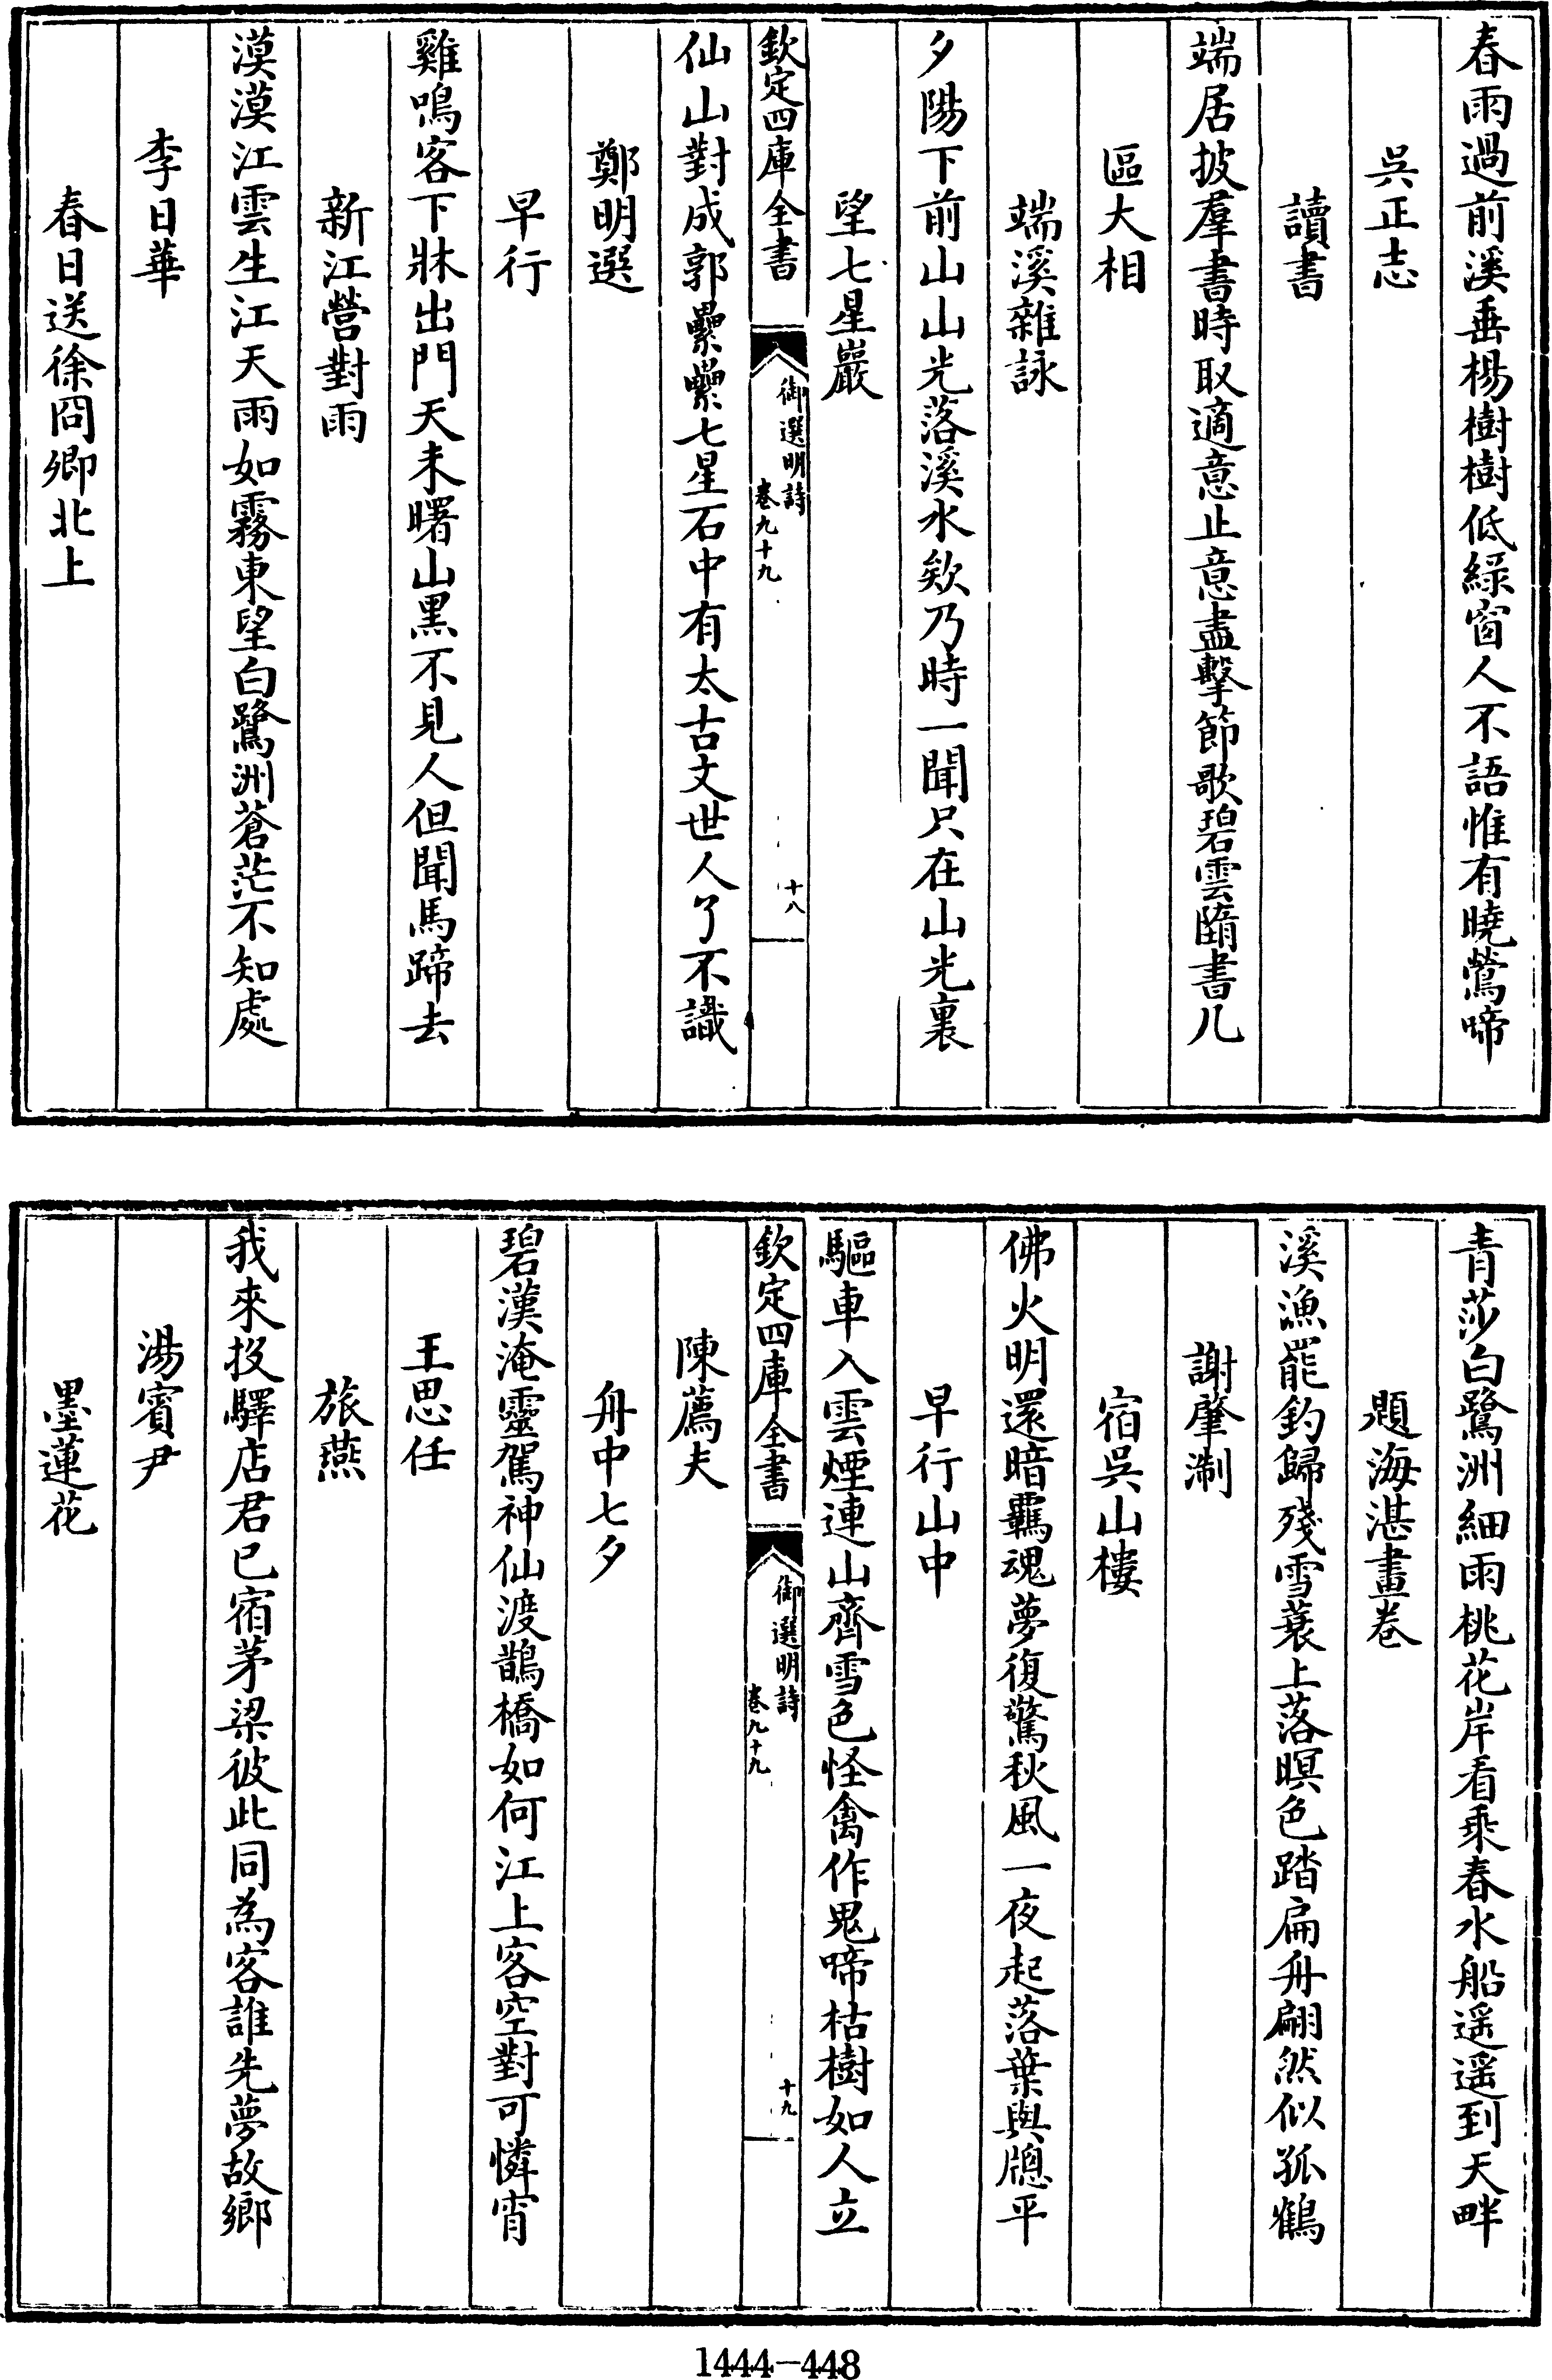 春雨過前溪垂楊樹樹低綠窗人不語惟有曉鶯啼
吳正志
讀書
端居披羣書時取適意止意盡擊節歌碧雲隨書几
區大相
端溪雜詠
夕陽下前山山光落溪水欸乃時一聞只在山光裏
望七星巖
欽定四庫全書
御選明詩
卷九十九
十八
仙山對成郭纍纍七星石中有太古文世人了不識
鄭明選
早行
雞鳴客下牀出門天未曙山黑不見人但聞馬蹄去
新江營對雨
漠漠江雲生江天雨如霧東望白鷺洲蒼茫不知處
李日華
春日送徐冏卿北上
青莎白鷺洲細雨桃花岸看乘春水船遥遥到天畔
題海湛畫卷
溪漁罷釣歸殘雪蓑上落暝色踏扁舟翩然似孤鶴
謝肇淛
宿吳山樓
佛火明還暗羈魂夢復驚秋風一夜起落葉與牎平
早行山中
驅車入雲煙連山齊雪色怪禽作鬼啼枯樹如人立
欽定四庫全書
御選明詩
卷九十九
十九
陳薦夫
舟中七夕
碧漢淹靈駕神仙渡鵲橋如何江上客空對可憐宵
王思任
旅燕
我來投驛店君已宿茅梁彼此同為客誰先夢故鄉
湯賓尹
墨蓮花
1444-448